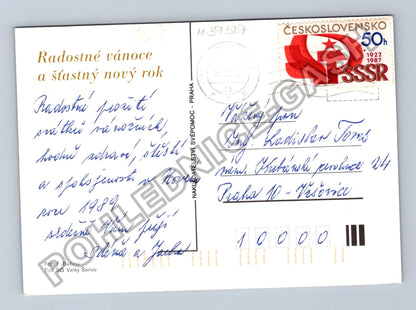 M 39507
Radostné vánoce
a šťastný nový rok
Radostné prožití
svátků vánočních,
hodně zdraví, štěstí
a spokojenosti v novém
roce 1989
srdečně Vám přejí
Zdena a
Foto P. Bařina
Tisk SG Velký Šenov
NAKLADATELSTVÍ SVÉPOMOC - PRAHA
ČESKOSLOVENSKO
50h
1922
1987
SSSR
Vážený pan
Ing. Ladislav Tomš
nám. Kubánské revoluce 24
Praha 10 - Vršovice
1 0 0 0 0
POHLEDNICE-GASPI